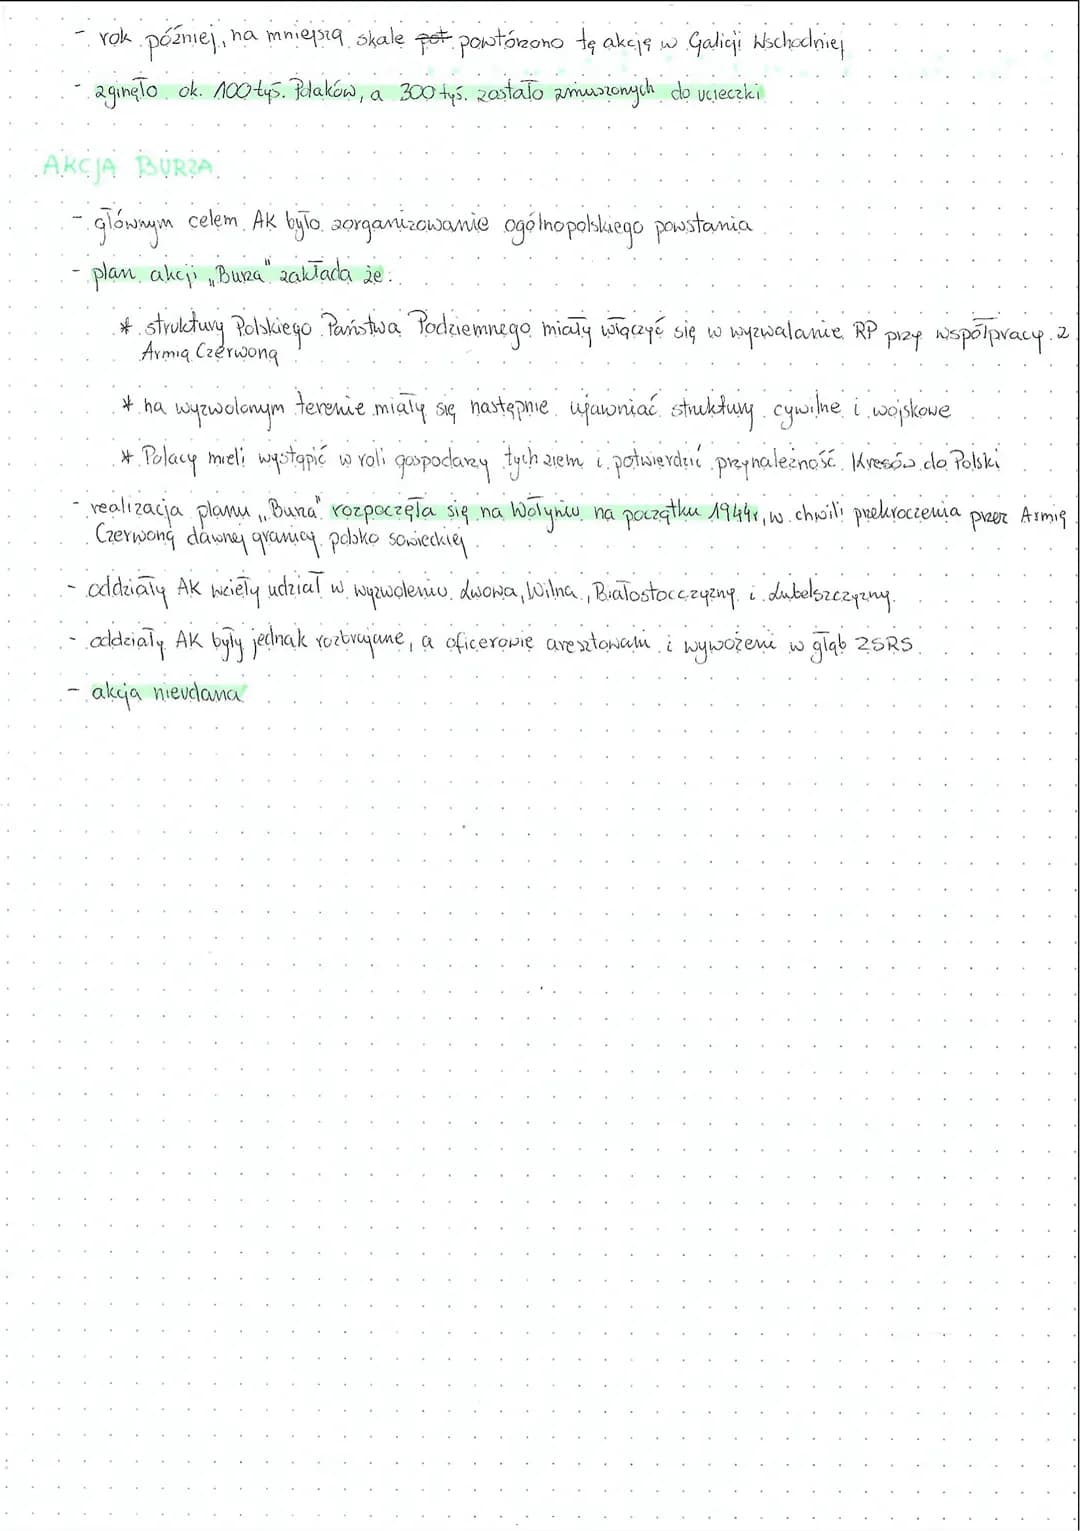 - rok później, na mniejszą skale pot powtórzono tę akcję w Galicji Wschodniej
- zginęło ok. 100 tyś. Polaków, a 300 tyś. zostało zmuszonych do ucieczki
AKCJA BURZA
- głównym celem AK było zorganizowanie ogólnopolskiego powstania
- plan akcji „Burza" zakłada że:
* struktury Polskiego Państwa Podziemnego miały włączyć się w wyzwalanie RP przy współpracy z
Armią Czerwoną
* na wyzwolonym terenie miały się następnie ujawniać struktury cywilne i wojskowe
* Polacy mieli wystąpić w roli gospodarzy tych ziem i potwierdzić przynależność Kresów do Polski
- realizacja planu „Burza" rozpoczęła się na Wołyniu na początku 1944r, w chwili przekroczenia przez Armię
Czerwoną dawnej granicy polsko sowieckiej
- oddziały AK wzięły udział w wyzwoleniu Lwowa, Wilna, Białostocczyzny i Lubelszczyzny.
- oddziały AK były jednak rozbrajane, a oficerowie aresztowani i wywożeni w głąb ZSRS.
- akcja nieudana